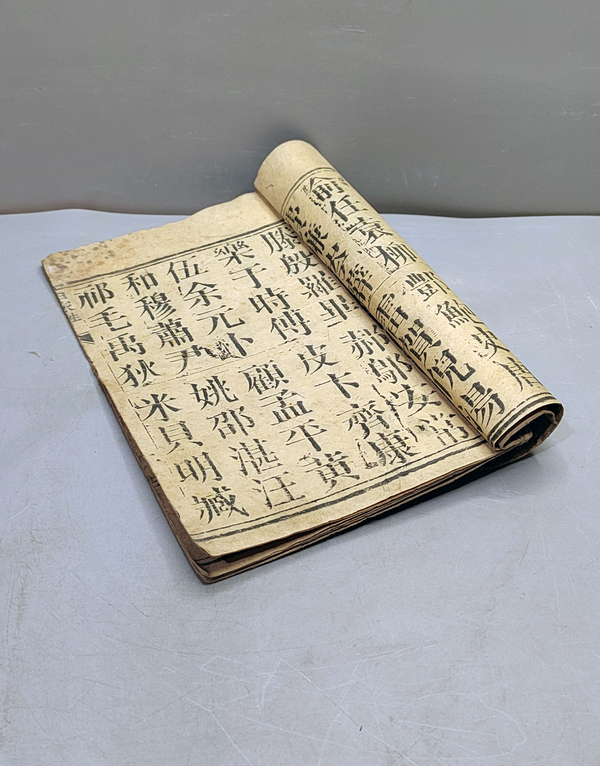 俞任袁柳 酆鮑史唐
廉岑薛 賀倪湯
滕殷羅畢 郝鄔安常
樂于時傅 皮卞齊康
伍余元卜 顧孟平黃
和穆蕭尹 姚邵湛汪
祁毛禹狄 米貝明臧